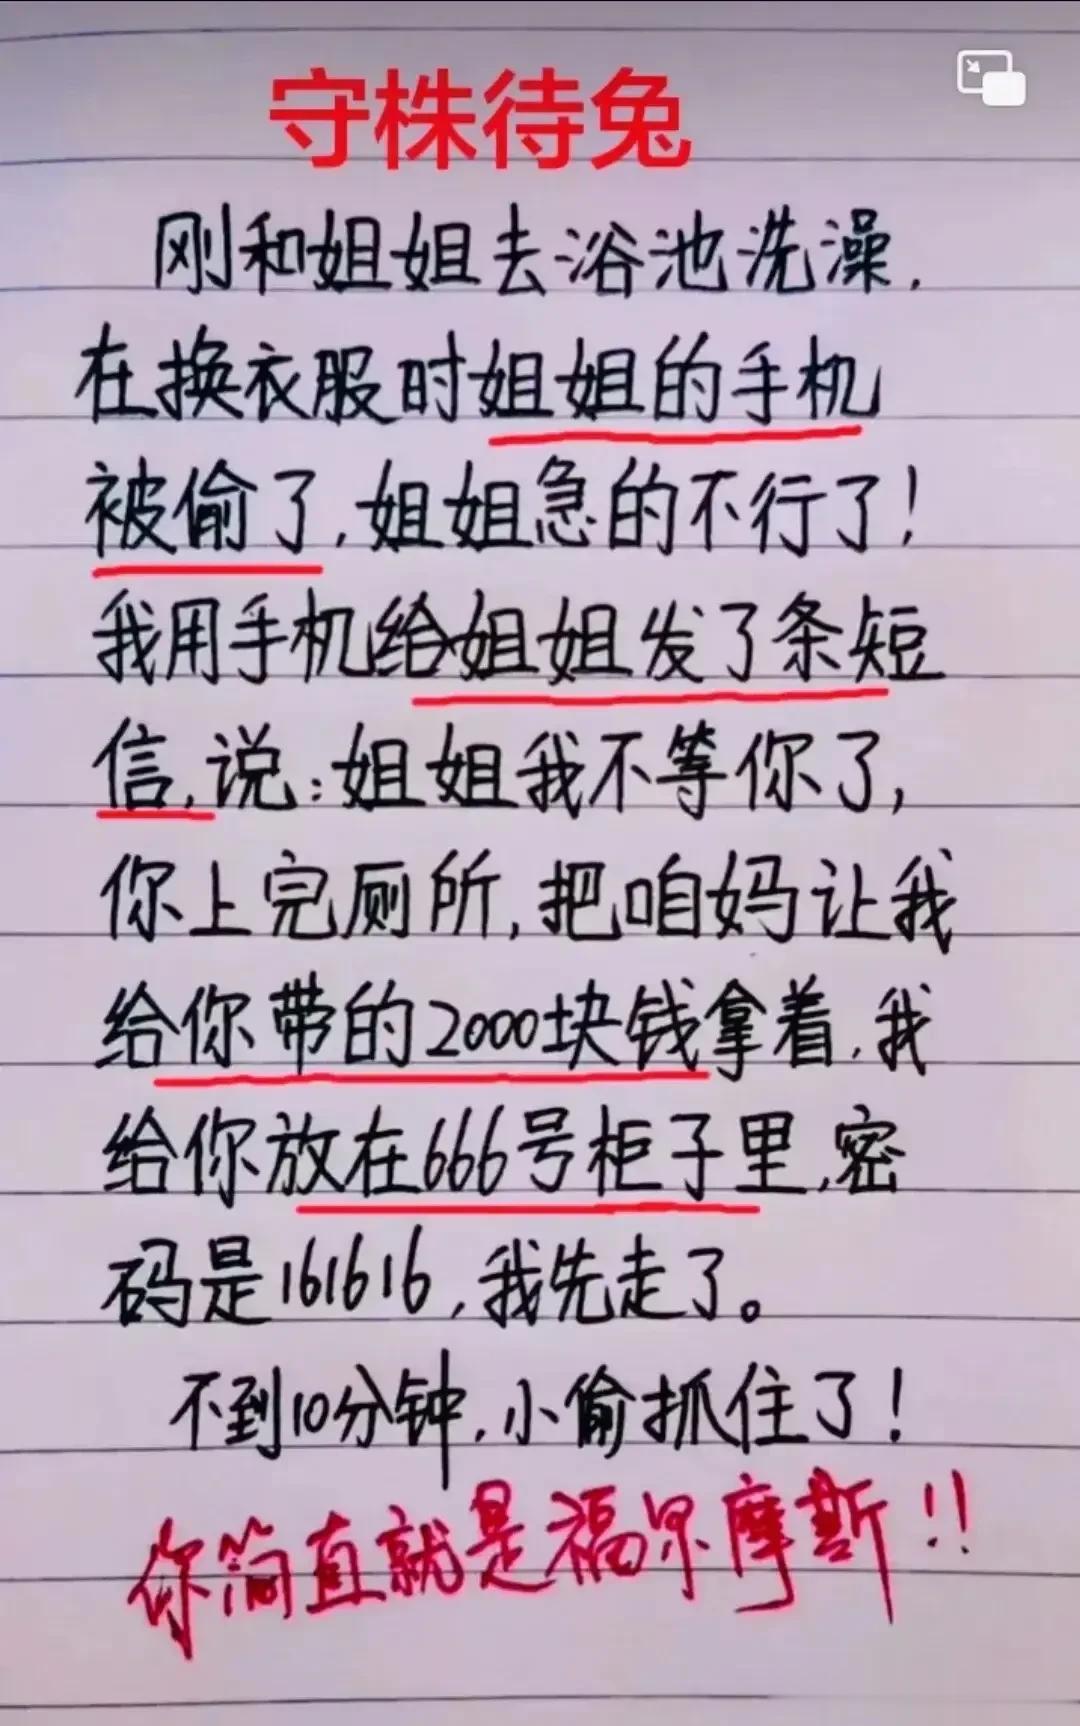 守株待兔
刚和姐姐去浴池洗澡,
在换衣服时姐姐的手机
被偷了,姐姐急的不行了!
我用手机给姐姐发了条短
信,说:姐姐我不等你了,
你上完厕所,把咱妈让我
给你带的2000块钱拿着,我
给你放在666号柜子里,密
码是161616,我先走了。
不到10分钟,小偷抓住了!
你简直就是福尔摩斯!!